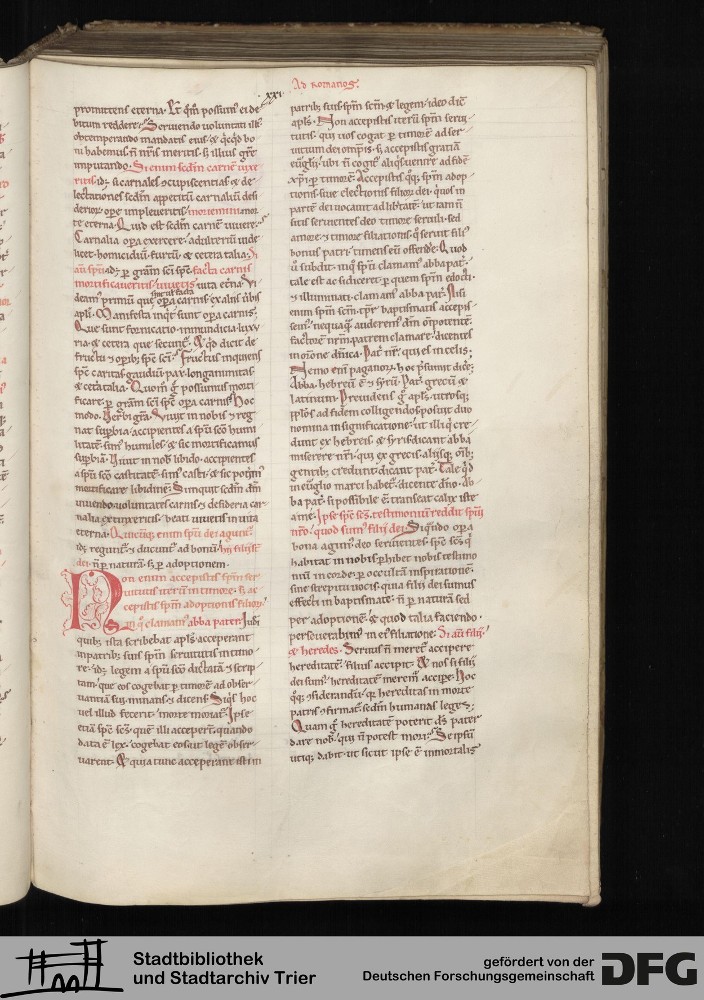 Ad Romanos.
xxv
promittens eterna. Et qm̄ possum' ei de
bitum reddere. Seruiendo uoluntati illi'
obtemperando mandatis eius. & qcqd bo
ni habemus n̄ nr̄is meritis. s; illius grē
imputando. Si enim scdm̄ carnē uixe
ritis. id; si carnales ɔcupiscentias & de
lectationes scdm̄ appetitū carnaliū desi
derior̄ ope impleueritis. moriemini. mor
te eterna. Quid est scdm̄ carnē uiuere.
Carnalia opa exercere. adulteriū uide
licet. homicidiū. furtū. & cetera talia. Si
aū spū. id; p gram̄ sci sp̄c. facta carnis
mortificaueritis. uiuetis uita etna. Vi
deam' primū que opa carnis
apl's. Manifesta inqt sunt opa carnis.
Que sunt fornicatio. inmundicia. luxu
ria. & cetera que secunt'.
fructu
sp̄c. caritas. gaudiū. pax. longanimitas.
& cetātalia. Quom̄ g possumus morti
ficare p gram̄ sci sp̄c opa carnis. Hoc
modo. Verbi gra. Viuit in nobis & reg
nat supbia. accipientes a spū sco humi
litatē. sim' humiles. & sic mortificamus
supbiā. Viuit in nob libido. accipientes
a spū sco castitatē. sim' casti. & sic potim'
mortificare libidinē. Si inquit scdm̄ dm̄
uiuendo uoluntates carnis & desideria car
nalia extinxeritis. beati uiuetis in uita
eterna. Quicūq; enim spū dei agunt'.
id; regunt' & ducunt' ad bonū. hii filii st
dei. n̄ p naturā. s; p adoptionem.
Non enim accepistis spm̄ ser
uitutis iterū in timore. s; ac
cepistis spm̄ adoptionis filior̄.
in q clamam' abba pater. Iudi
quib; ista scribebat apl's. acceperant
in patrib; suis spm̄ seruitutis in timo
re. id; legem a spū sco dictatā & scrip
tam. que eos cogebat p timorē ad obser
uantiā sui. minans & dicens. Siqs hoc
uel illud fecerit. morte moriat'. Ipse
etiā sp̄c scs. quē illi acceper̄t. quando
data ē lex. cogebat eos ut legē obser
uarent. & quia tunc acceperant isti in
patrib; suis spm̄ scm̄ & legem. ideo dic̄
apl's. Non accepistis iterū spm̄ serui
tutis. qui uos cogat p timorē ad ser
uitium dei omp̄is. s; accepistis gratiā
eūglii. ubi n̄ cogit' aliqs uenire ad fidē
xp̄i p timorē. Accepistis qq; spm̄ adop
tionis siue electionis filior̄ dei. quos in
partē dei uocauit ad libtatē. ut iam n̄
sitis seruientes deo timore seruili. sed
amore & timore filiationis. q seruit fili'
bonus patri. timens eū offende. Quod
ū subdit. in q spm̄ clamam' abba pat'.
tale est ac si diceret. p quem spm̄ edocti
& illuminati. clamam' abba pat'. Nisi
enim spm̄ scm̄ tp̄r baptismatis accepis
sem'. nequaqā auderem' dm̄ om̄ipotentē
factorē nrm̄ patrem clamare. dicentes
in or̄one dn̄ica. Pat' nr̄. qui es in celis.
Nemo enī paganor̄. hoc p̄sumit dice.
Abba. hebreū ē & syrū. Pat'. grecū &
latinum. Preuidens g apl's. utrosq;
pplos ad fidem colligendos. posuit duo
nomina in significatione. ut illi q cre
dunt ex hebreis & syris dicant abba
miserere nr̄i. qui ex grecis aliisq; om̄ib;
gentib; credunt. dicant pat'. Tale qd
in euglio marci habet'. dicente dn̄o. Ab
ba pat'. si possibile ē. transeat calix iste
a me. Ipse sp̄c scs. testimoniū reddit spūi
nr̄o. quod sum' filii dei. Siqndo opa
bona agim' deo seruientes. sp̄c scs q
habitat in nobis. phibet nobis testimo
niū in corde. p occultā inspirationē
sine strepitu uocis. quia filii dei sumus
effecti in baptismate. n̄ p naturā sed
per adoptionē. & quod talia faciendo.
perseuerabim' in ei' filiatione. Si aū filii.
& heredes. Seruus n̄ meret' accipere
hereditatē. filius accipit. & nos si filii
dei sum'. hereditatē merem' accipe. Hoc
qq; ɔsiderandū. quia hereditas in morte
patris ɔfirmat' scdm̄ humanas leges.
Quam g hereditatē poterit ds pater
dare nob. qui n̄ potest mori. Se ipsū
utiq; dabit. ut sicut ipse ē inmortalis
Stadtbibliothek
und Stadtarchiv Trier
gefördert von der
Deutschen Forschungsgemeinschaft
DFG